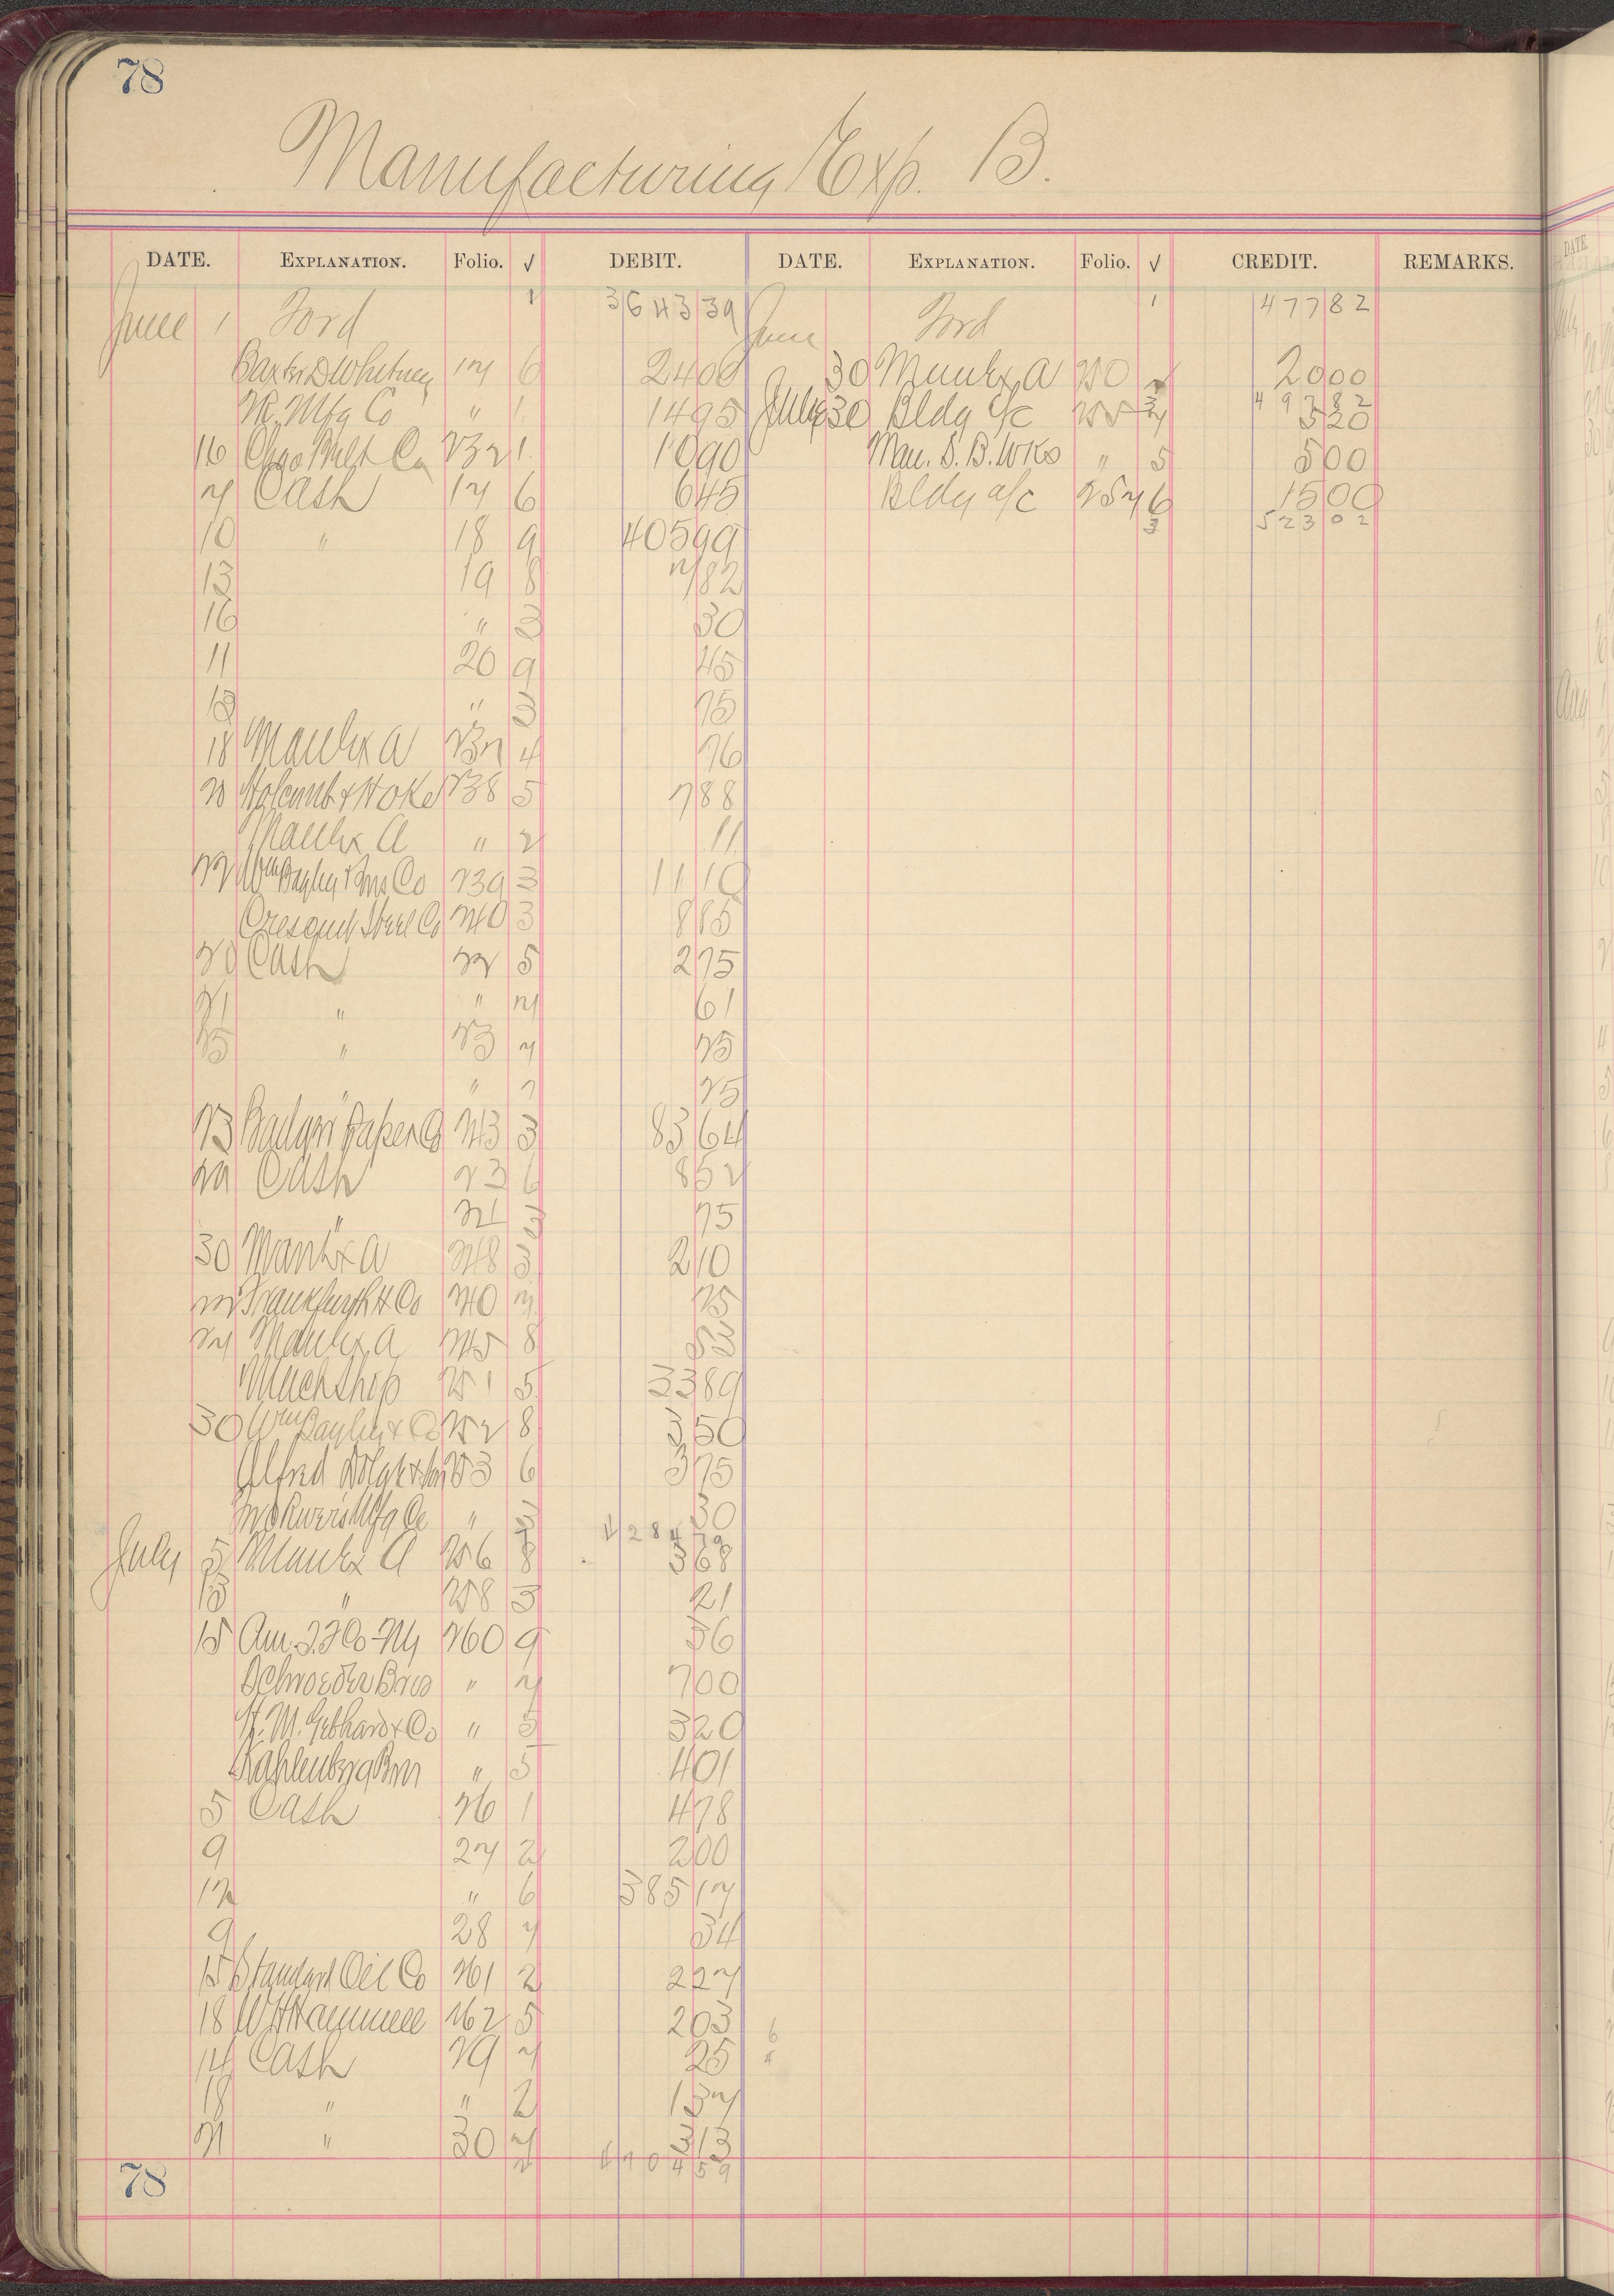 78
Manufacturing Exp. B.
DATE. EXPLANATION. Folio. √ DEBIT. DATE. EXPLANATION. Folio. √ CREDIT. REMARKS.
June 1 Ford 3643 39 June Ford 1 477 82
Baxter D Whitney 17 6 24 00 30 Manfr A 250 20 00
Mfg Co " 1 14 95 497 82
July 30 Bldg a/c 255 5 20
16 Chgo Belt Co 232 1 10 90 Man. S. B. Wks " 5 5 00
7 Cash 17 6 6 45 Bldg a/c 257 6 15 00
10 " 18 9 405 99 3 523 02
13 19 8 7 82
16 " 3 30
11 20 9 45
18 " 3 75
18 Manfr A 237 4 76
20 Holcomb & Hoke 238 5 7 88
Manfr A " 2 11
22 Wm Bayley & Sons Co 239 3 11 10
Crescent Steel Co 240 3 8 85
20 Cash 22 5 2 75
21 " " 7 61
25 " 23 7 25
" " 7 25
23 Badger Paper Co 243 3 83 64
Cash 23 6 8 52
" 21 3 75
30 Manfr A 248 3 2 10
Frankfurth H Co 240 7 25
27 Manfr A 245 8
Mach Shop 251 5 33 89
30 Wm Bayley & Co 252 8 3 50
Alfred Dolge & Son 253 6 3 75
Mfg Co " 3 30
4284 79
July 5 Manfr A 256 8 3 68
13 " 258 3 21
15 Am. Co NY 260 9 56
Schroeder Bros " 7 7 00
H. M. Gebhard & Co " 5 3 20
Kahlenberg Bros " 5 4 01
5 Cash 26 1 4 78
9 27 2 2 00
12 " 6 385 17
9 28 7 34
15 Standard Oil Co 261 2 2 27
18 262 5 2 03
14 Cash 29 7 25
18 " " 2 1 37
21 " 30 7 3 13
4704 59
78